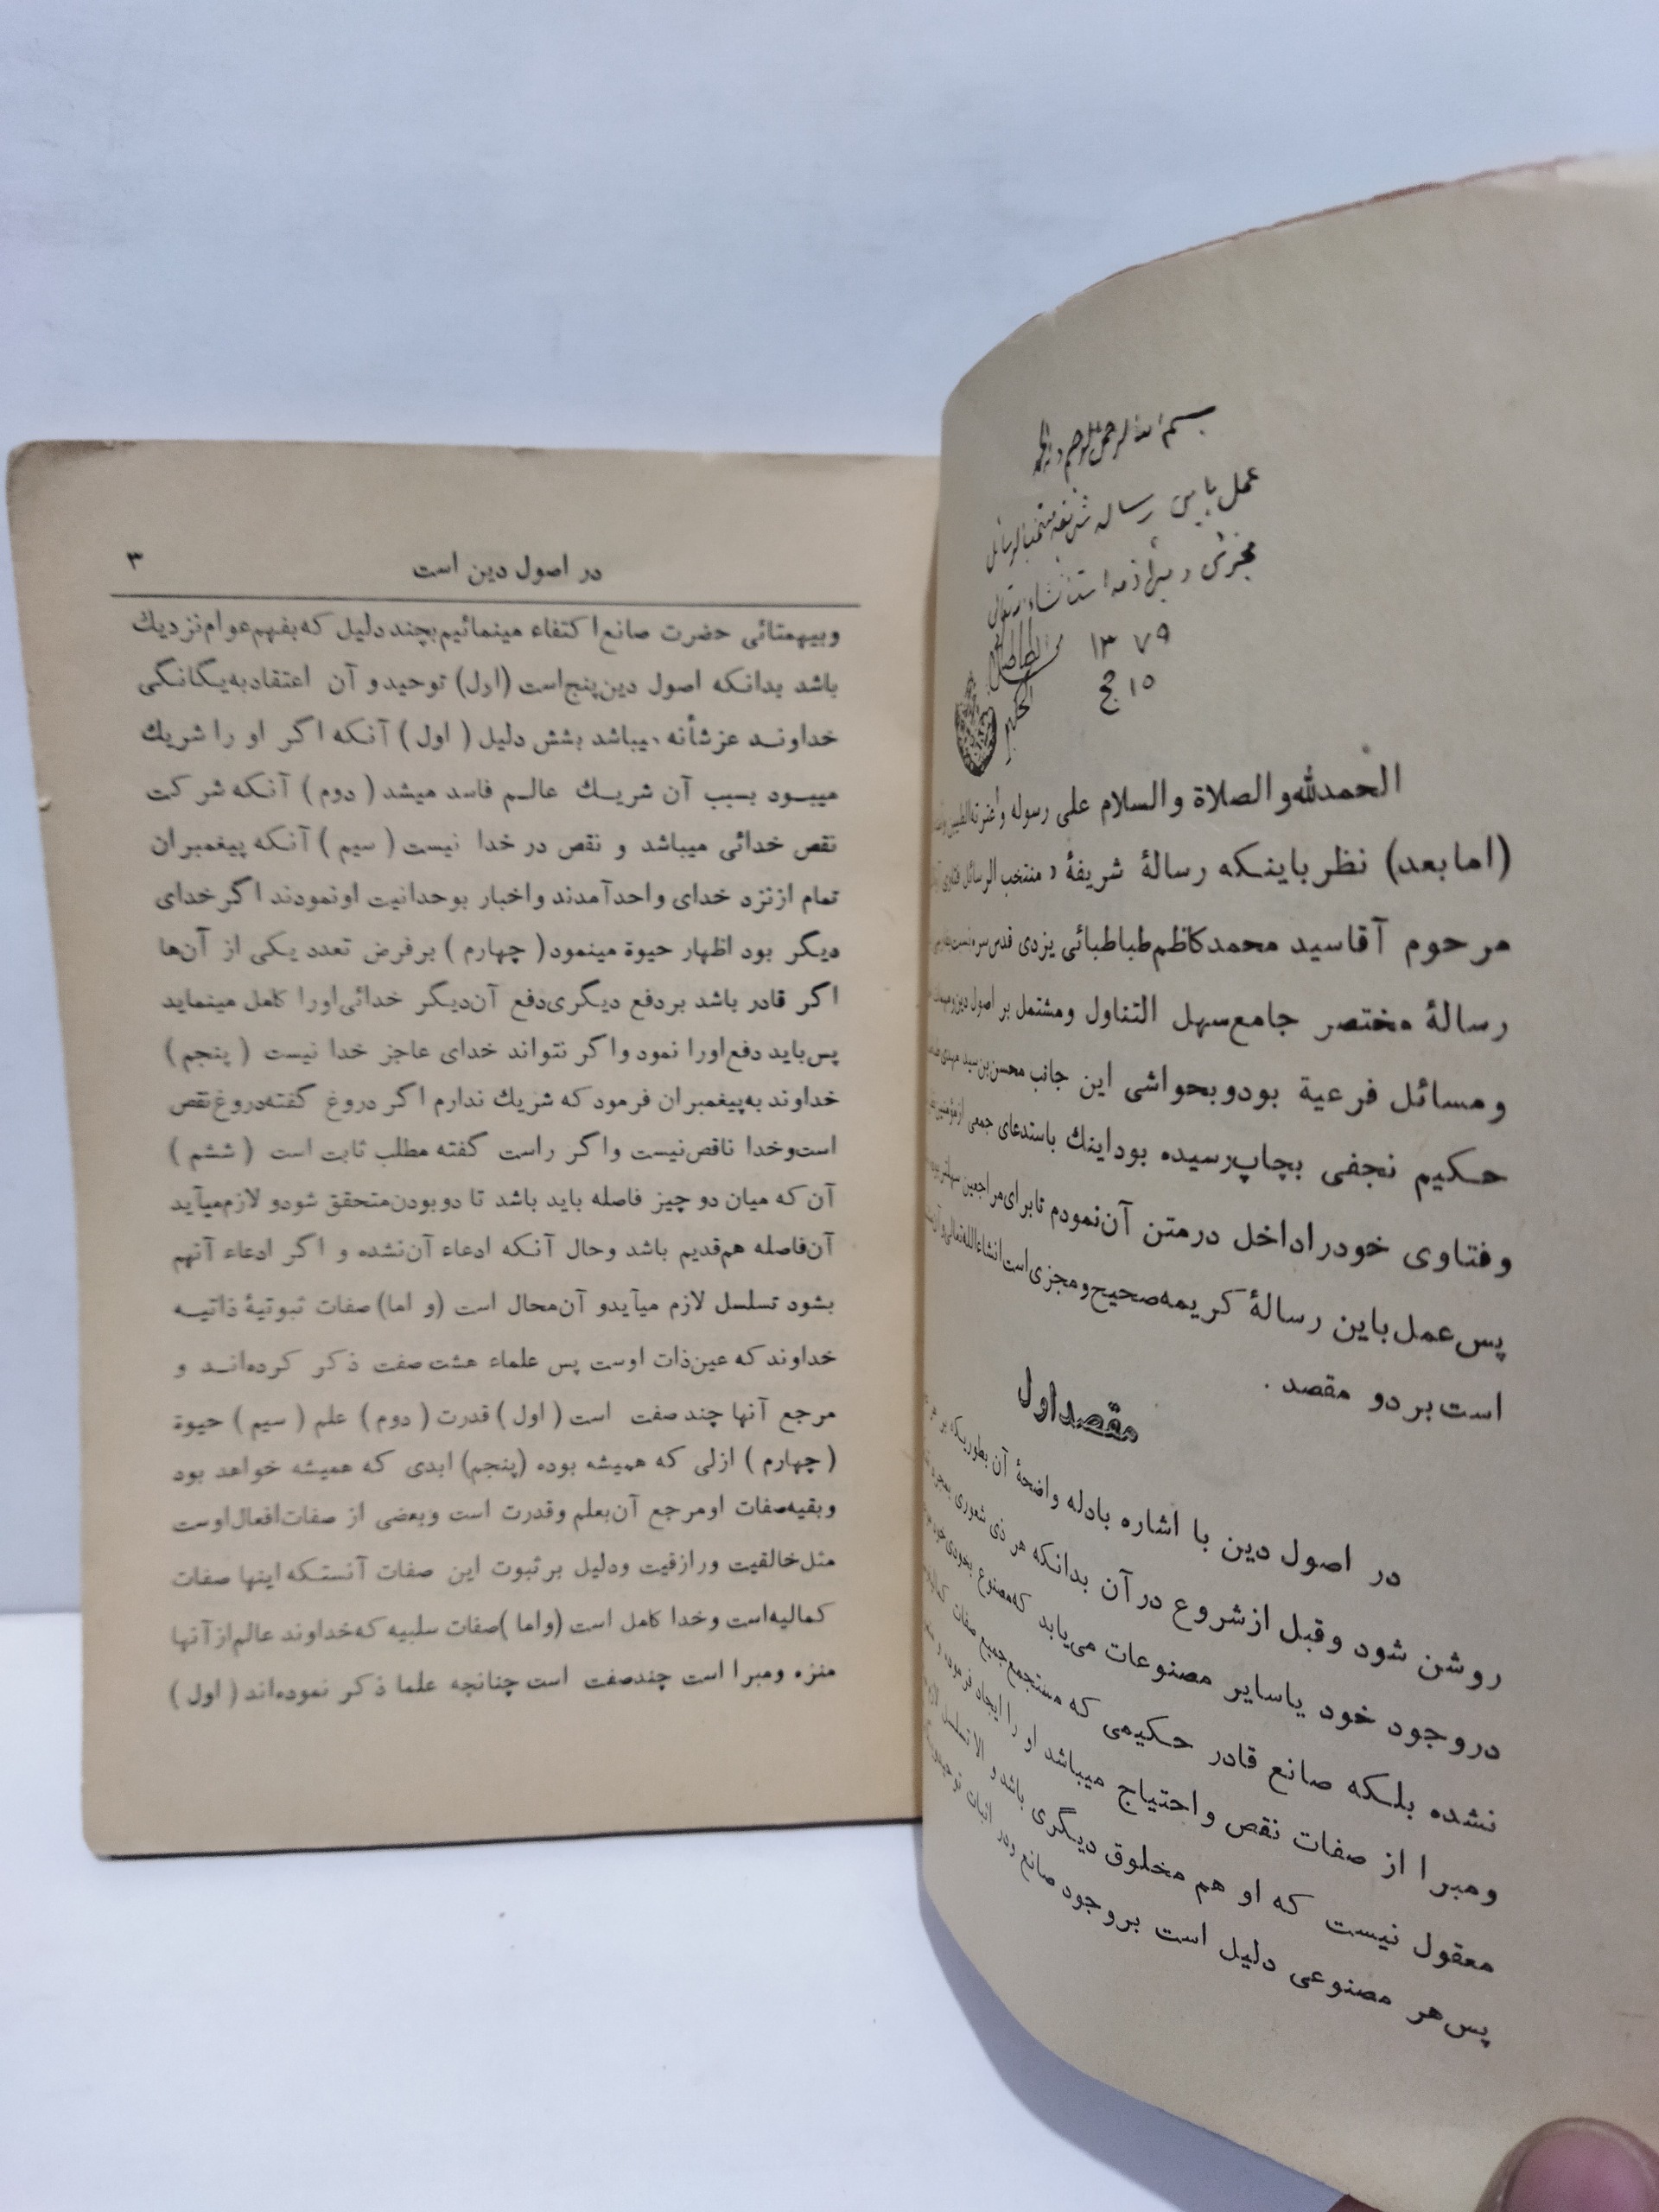 بسم الله الرحمن الرحیم
عمل باین رساله شریفه منتخب الرسائل
مجزی و مبرأ ذمه است انشاء الله تعالی
۱۳۷۹
۱۵ ج
الطباطبائی
الحکیم
الحمدلله والصلاة والسلام علی رسوله وعترته الطیبین
(امابعد) نظر باینکه رسالهٔ شریفهٔ «منتخب الرسائل فتاوی
مرحوم آقاسید محمدکاظم طباطبائی یزدی قدس سره
رسالهٔ مختصر جامع سهل التناول ومشتمل بر اصول دین
ومسائل فرعیة بودوبحواشی این جانب محسن بن سید مهدی
حکیم نجفی بچاپ رسیده بوداینك باستدعای جمعی ازمؤمنین
وفتاوی خودراداخل درمتن آن نمودم تابرای مراجعین
پس عمل باین رسالهٔ کریمه صحیح ومجزی است انشاءالله تعالی
است بر دو مقصد .
مقصداول
در اصول دین با اشاره بادله واضحهٔ آن بطوریکه بر
روشن شود وقبل ازشروع درآن بدانکه هر ذی شعوری
دروجود خود یاسایر مصنوعات می یابد که مصنوع بخودی خود
نشده بلکه صانع قادر حکیمی که مستجمع جمیع صفات
ومبرا از صفات نقص واحتیاج میباشد او را ایجاد فرموده
معقول نیست که او هم مخلوق دیگری باشد و الا تسلسل
پس هر مصنوعی دلیل است بروجود صانع ودر اثبات
در اصول دین است ۳
وبیهمتائی حضرت صانع اکتفاء مینمائیم بچند دلیل که بفهم عوام نزدیك
باشد بدانکه اصول دین پنج است (اول) توحید و آن اعتقاد به یگانگی
خداوند عزشأنه میباشد بشش دلیل (اول) آنکه اگر او را شریك
میبود بسبب آن شریك عالم فاسد میشد (دوم) آنکه شرکت
نقص خدائی میباشد و نقص در خدا نیست (سیم) آنکه پیغمبران
تمام ازنزد خدای واحد آمدند واخبار بوحدانیت اونمودند اگر خدای
دیگر بود اظهار حیوة مینمود (چهارم) برفرض تعدد یکی از آن ها
اگر قادر باشد بردفع دیگری دفع آن دیگر خدائی اورا کامل مینماید
پس باید دفع اورا نمود واگر نتواند خدای عاجز خدا نیست (پنجم)
خداوند به پیغمبران فرمود که شریك ندارم اگر دروغ گفته دروغ نقص
است وخدا ناقص نیست واگر راست گفته مطلب ثابت است (ششم)
آن که میان دو چیز فاصله باید باشد تا دوبودن متحقق شودو لازم میآید
آن فاصله هم قدیم باشد وحال آنکه ادعاء آن نشده و اگر ادعاء آنهم
بشود تسلسل لازم میآیدو آن محال است (و اما) صفات ثبوتیهٔ ذاتیه
خداوند که عین ذات اوست پس علماء هشت صفت ذکر کرده اند و
مرجع آنها چند صفت است (اول) قدرت (دوم) علم (سیم) حیوة
(چهارم) ازلی که همیشه بوده (پنجم) ابدی که همیشه خواهد بود
وبقیه صفات اومرجع آن بعلم وقدرت است وبعضی از صفات افعال اوست
مثل خالقیت ورازقیت ودلیل بر ثبوت این صفات آنستکه اینها صفات
کمالیه است وخدا کامل است (واما) صفات سلبیه که خداوند عالم از آنها
منزه ومبرا است چند صفت است چنانچه علما ذکر نموده اند (اول)